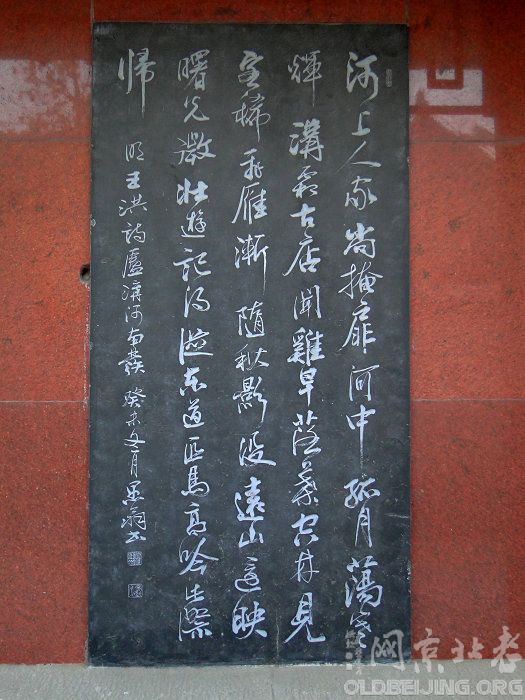 河上人家尚掩扉河中孤月蕩寒
輝溝古店聞雞早落葉空林見
稀飛雁漸隨秋影沒遠山遙映
曙光微壯遊記得東道匹馬高吟此際
歸
明王洪詩盧溝河南發癸未冬月翁書
網京北老
OLDBEIJING.ORG